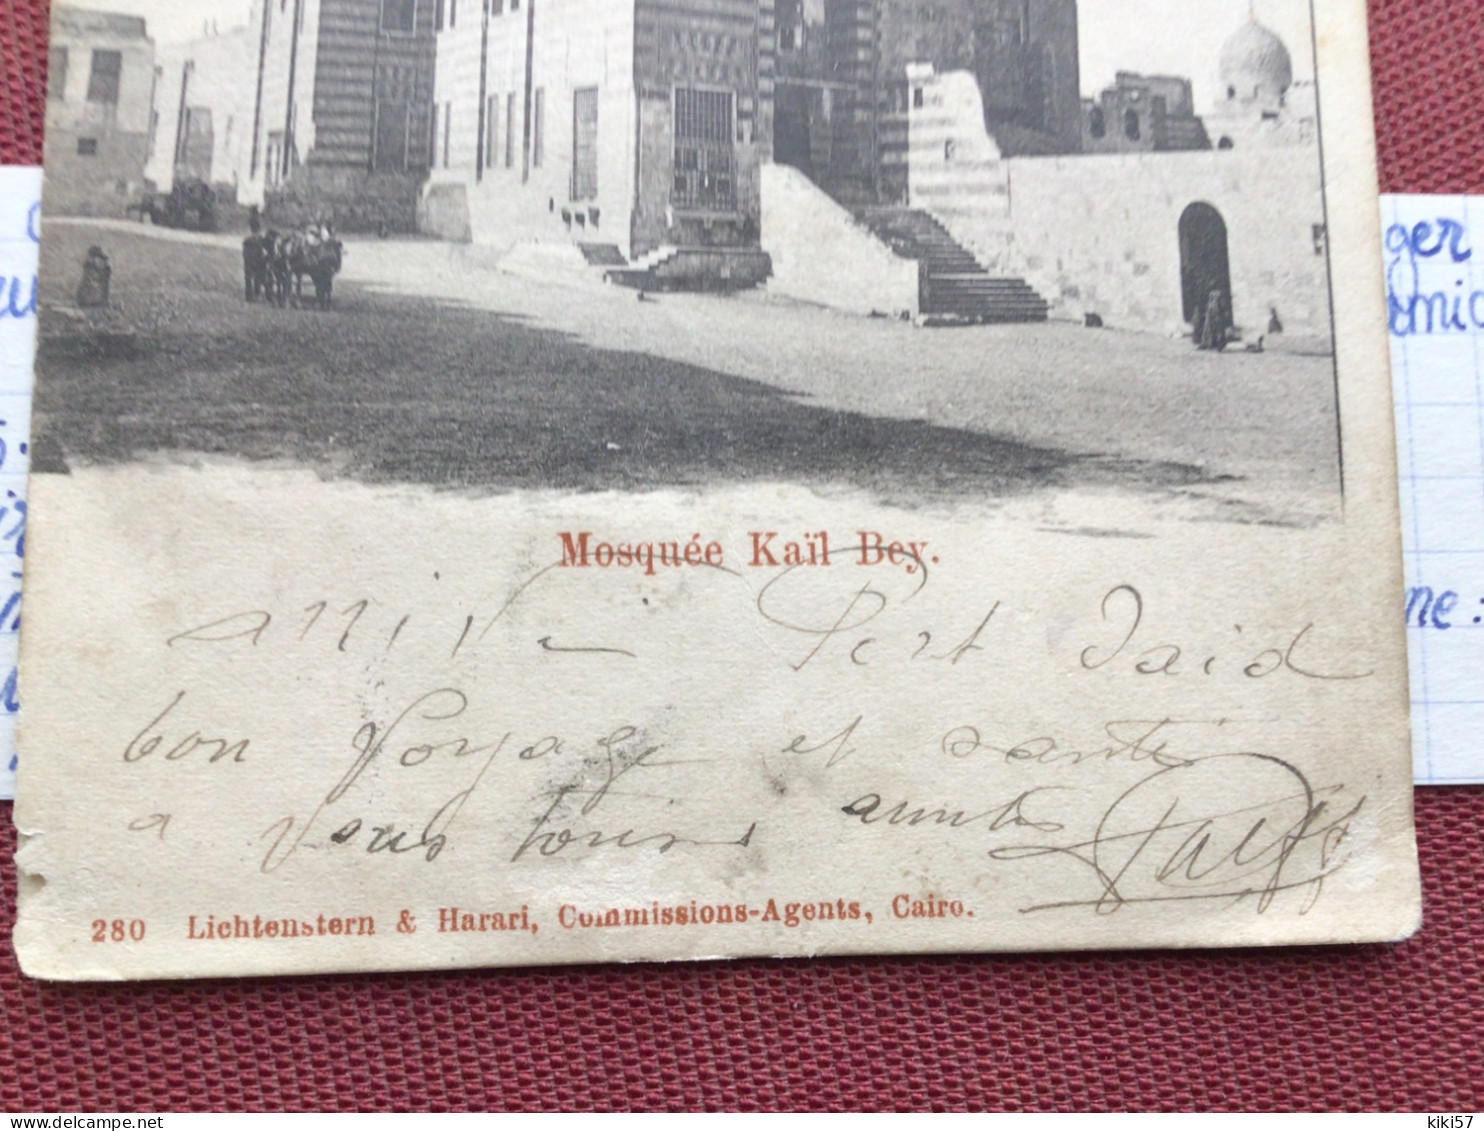 Mosquée Kaïl Bey.
arrivé Port Said
bon voyage et santé
a vous tous amitiés
280 Lichtenstern & Harari, Commissions-Agents, Cairo.
ger
omic
me :
kiki57